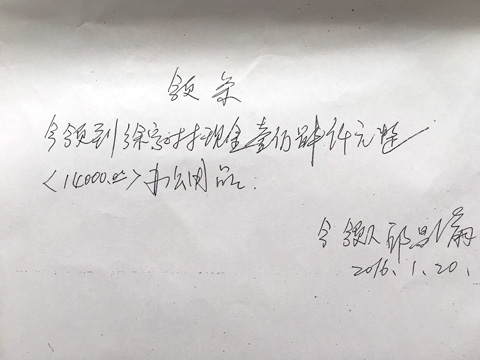 领条
今领到徐家村村现金壹万肆仟元整
<14000.00>办公用品.
今领人
2016.1.20.